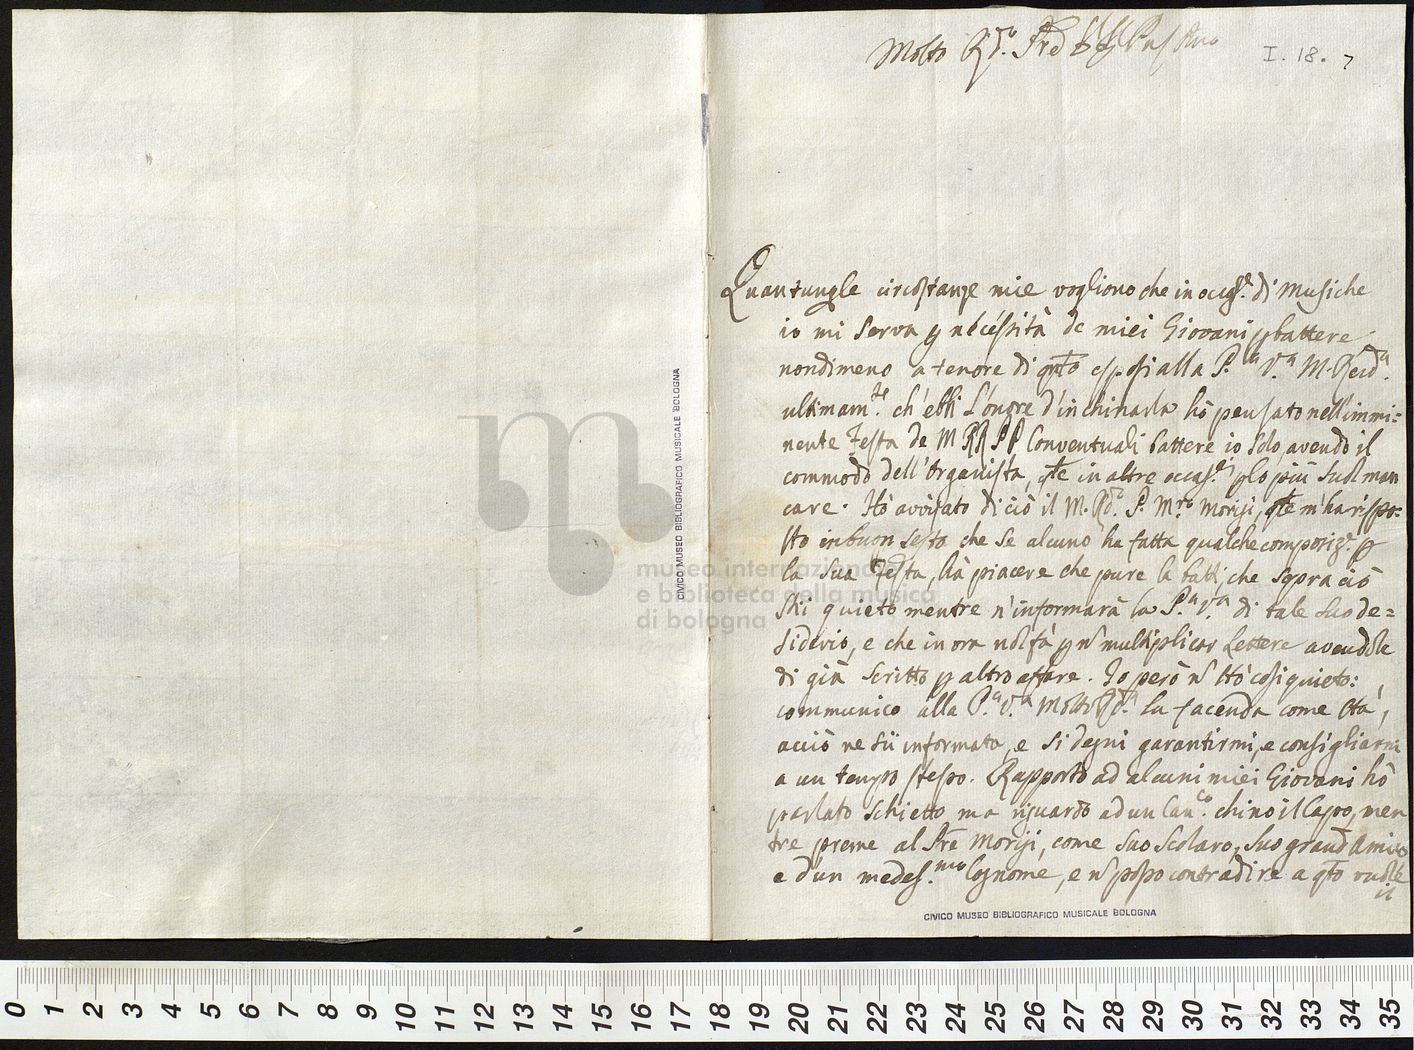 Molto Rdo. Pre
I. 18. 7
Quantunqle circostanze mie vogliono che in occasne. di Musiche
io mi serva p necessità de miei Giovani p battere
nondimeno a tenore di qnto esposi alla P.tà V.ra M. Revda.
ultimam.te ch'ebbi l'onore d'inchinarla hò pensato nell'immi=
nente Festa de M RR PP Conventuali battere io solo, avendo il
commodo dell'Organista, che in altre occasne. p lo più suol man
care. Hò avvisato di ciò il M. Rdo. P. Mro. Moriji, qle m'ha rispo=
sto in buon sesto che se alcuno ha fatta qualche composize. p
la sua Festa, hà piacere che pure la batti, che sopra ciò
stii quieto mentre n'informarà la P.tà V.ra di tale suo de=
siderio, e che in ora nol fà p n multiplicar Lettere avendole
di già scritto p altro affare. Io però n stò così quieto:
communico alla P.tà V.ra Molto Rda. la facenda come stà,
acciò ne sii informata, e si degni garantirmi, e consigliarmi
a un tempo stesso. Rapporto ad alcuni miei Giovani hò
parlato schietto ma riguardo ad un Canco. chino il Capo, men
tre preme al Pre Moriji, come suo scolaro, suo grand'Amico
e d'un medes.mo Cognome, e n posso contradire a qto vuole
il
CIVICO MUSEO BIBLIOGRAFICO MUSICALE BOLOGNA
CIVICO MUSEO BIBLIOGRAFICO MUSICALE BOLOGNA
museo internazionale
e biblioteca della musica
di bologna
0 1 2 3 4 5 6 7 8 9 10 11 12 13 14 15 16 17 18 19 20 21 22 23 24 25 26 27 28 29 30 31 32 33 34 35